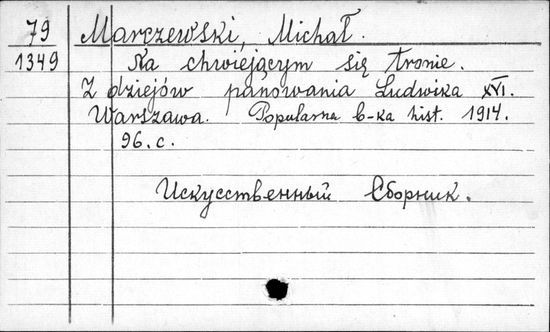 79 Marczewski, Michał.
1349 Na chwiejącym się tronie.
Z dziejów panowania Ludwika XVI.
Warszawa. Popularna b-ka hist. 1914.
96. c.
Искусственный Сборник.